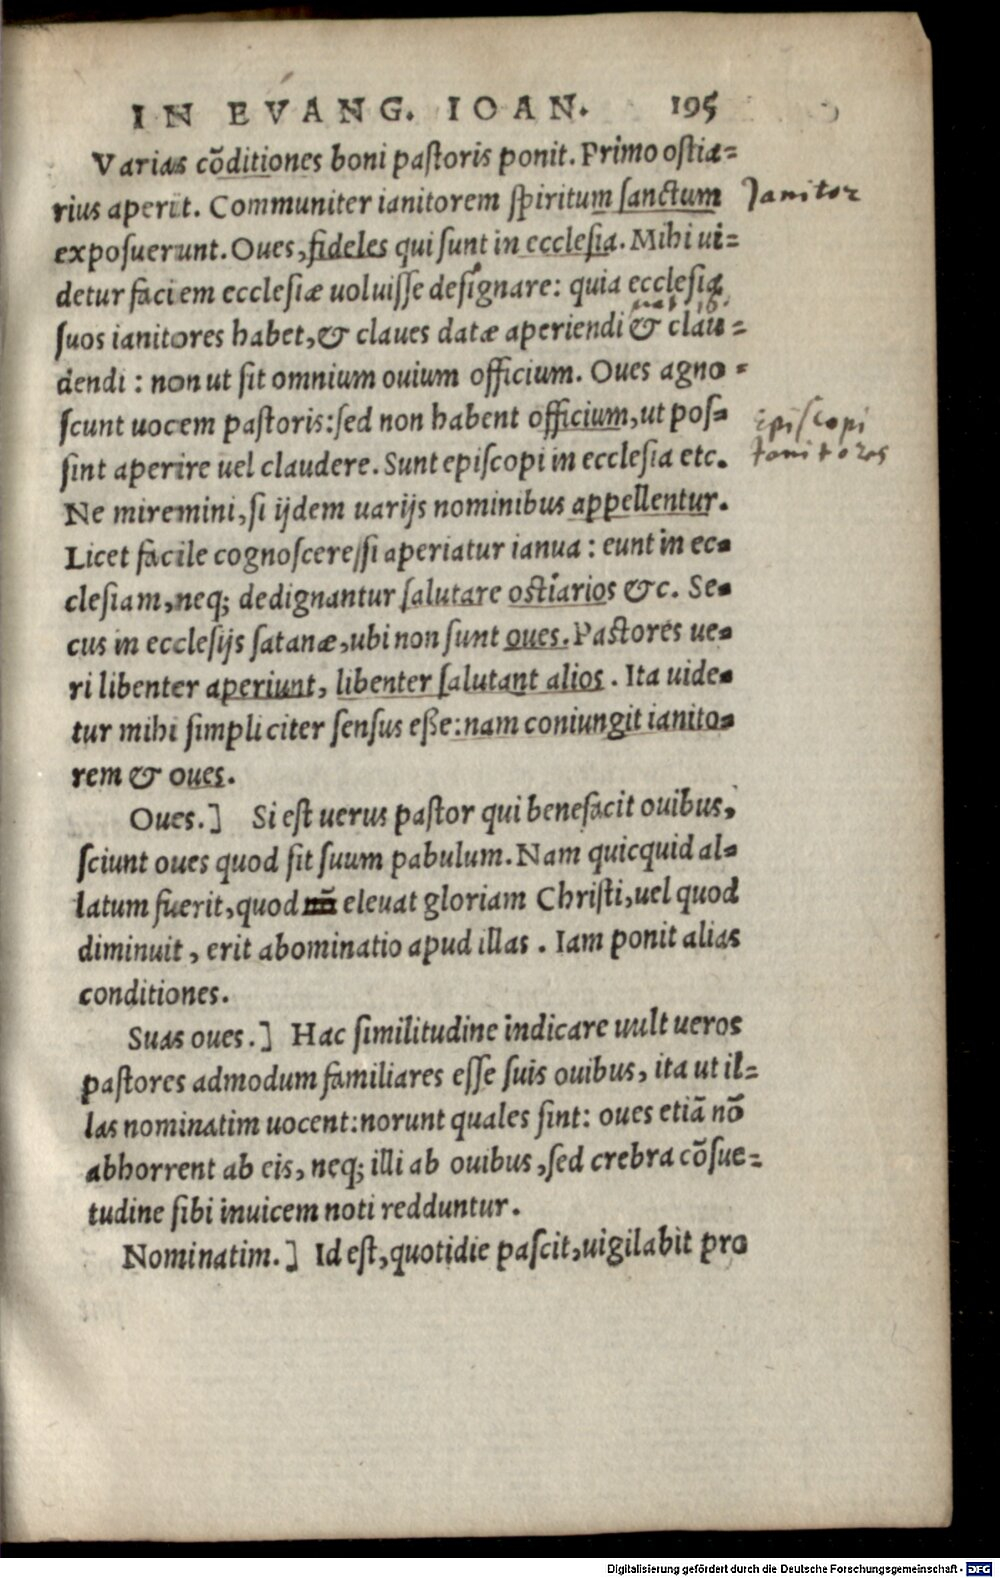 IN EVANG. IOAN. 195
Varias cōditiones boni paſtoris ponit. Primo oſtia=
rius aperit. Communiter ianitorem ſpiritum ſanctum
Janitor
expoſuerunt. Oues, fideles qui ſunt in eccleſia. Mihi ui=
detur faciem eccleſiæ uoluiſſe deſignare: quia eccleſia
ſuos ianitores habet, & claues datæ aperiendi & clau=
dendi: non ut ſit omnium ouium officium. Oues agno=
ſcunt uocem paſtoris: ſed non habent officium, ut poſ=
Epiſcopi
ſint aperire uel claudere. Sunt epiſcopi in eccleſia etc.
Janitores
Ne miremini, ſi ijdem uarijs nominibus appellentur.
Licet facile cognoſcere, ſi aperiatur ianua: eunt in ec=
cleſiam, neq; dedignantur ſalutare oſtiarios &c. Se=
cus in eccleſijs ſatanæ, ubi non ſunt oues. Paſtores ue=
ri libenter aperiunt, libenter ſalutant alios. Ita uide=
tur mihi ſimpliciter ſenſus eße: nam coniungit ianito=
rem & oues.
Oues.] Si eſt uerus paſtor qui benefacit ouibus,
ſciunt oues quod ſit ſuum pabulum. Nam quicquid al=
latum fuerit, quod nō eleuat gloriam Chriſti, uel quod
diminuit, erit abominatio apud illas. Iam ponit alias
conditiones.
Suas oues.] Hac ſimilitudine indicare uult ueros
paſtores admodum familiares eſſe ſuis ouibus, ita ut il=
las nominatim uocent: norunt quales ſint: oues etiā nō
abhorrent ab eis, neq; illi ab ouibus, ſed crebra cōſue=
tudine ſibi inuicem noti redduntur.
Nominatim.] Id eſt, quotidie paſcit, uigilabit pro
Digitalisierung gefördert durch die Deutsche Forschungsgemeinschaft - DFG